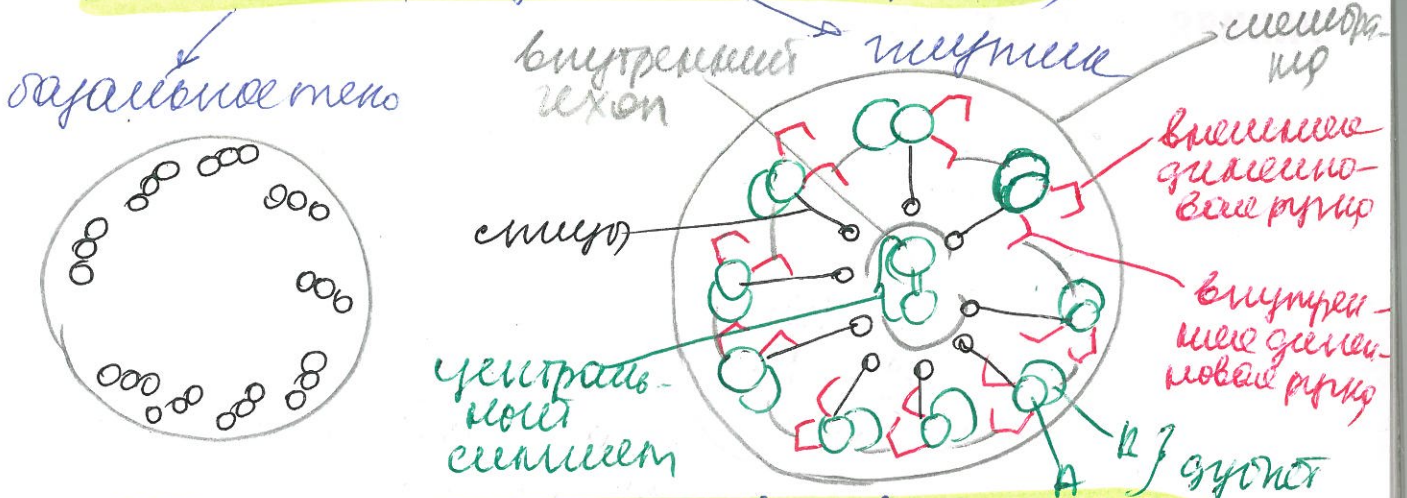 базальное тело
внутренний
чехол
жгутик
мембра-
на
внешняя
динеино-
вая ручка
спицы
внутрен-
няя динеи-
новая ручка
централь-
ный
синглет
A
B } дуплет